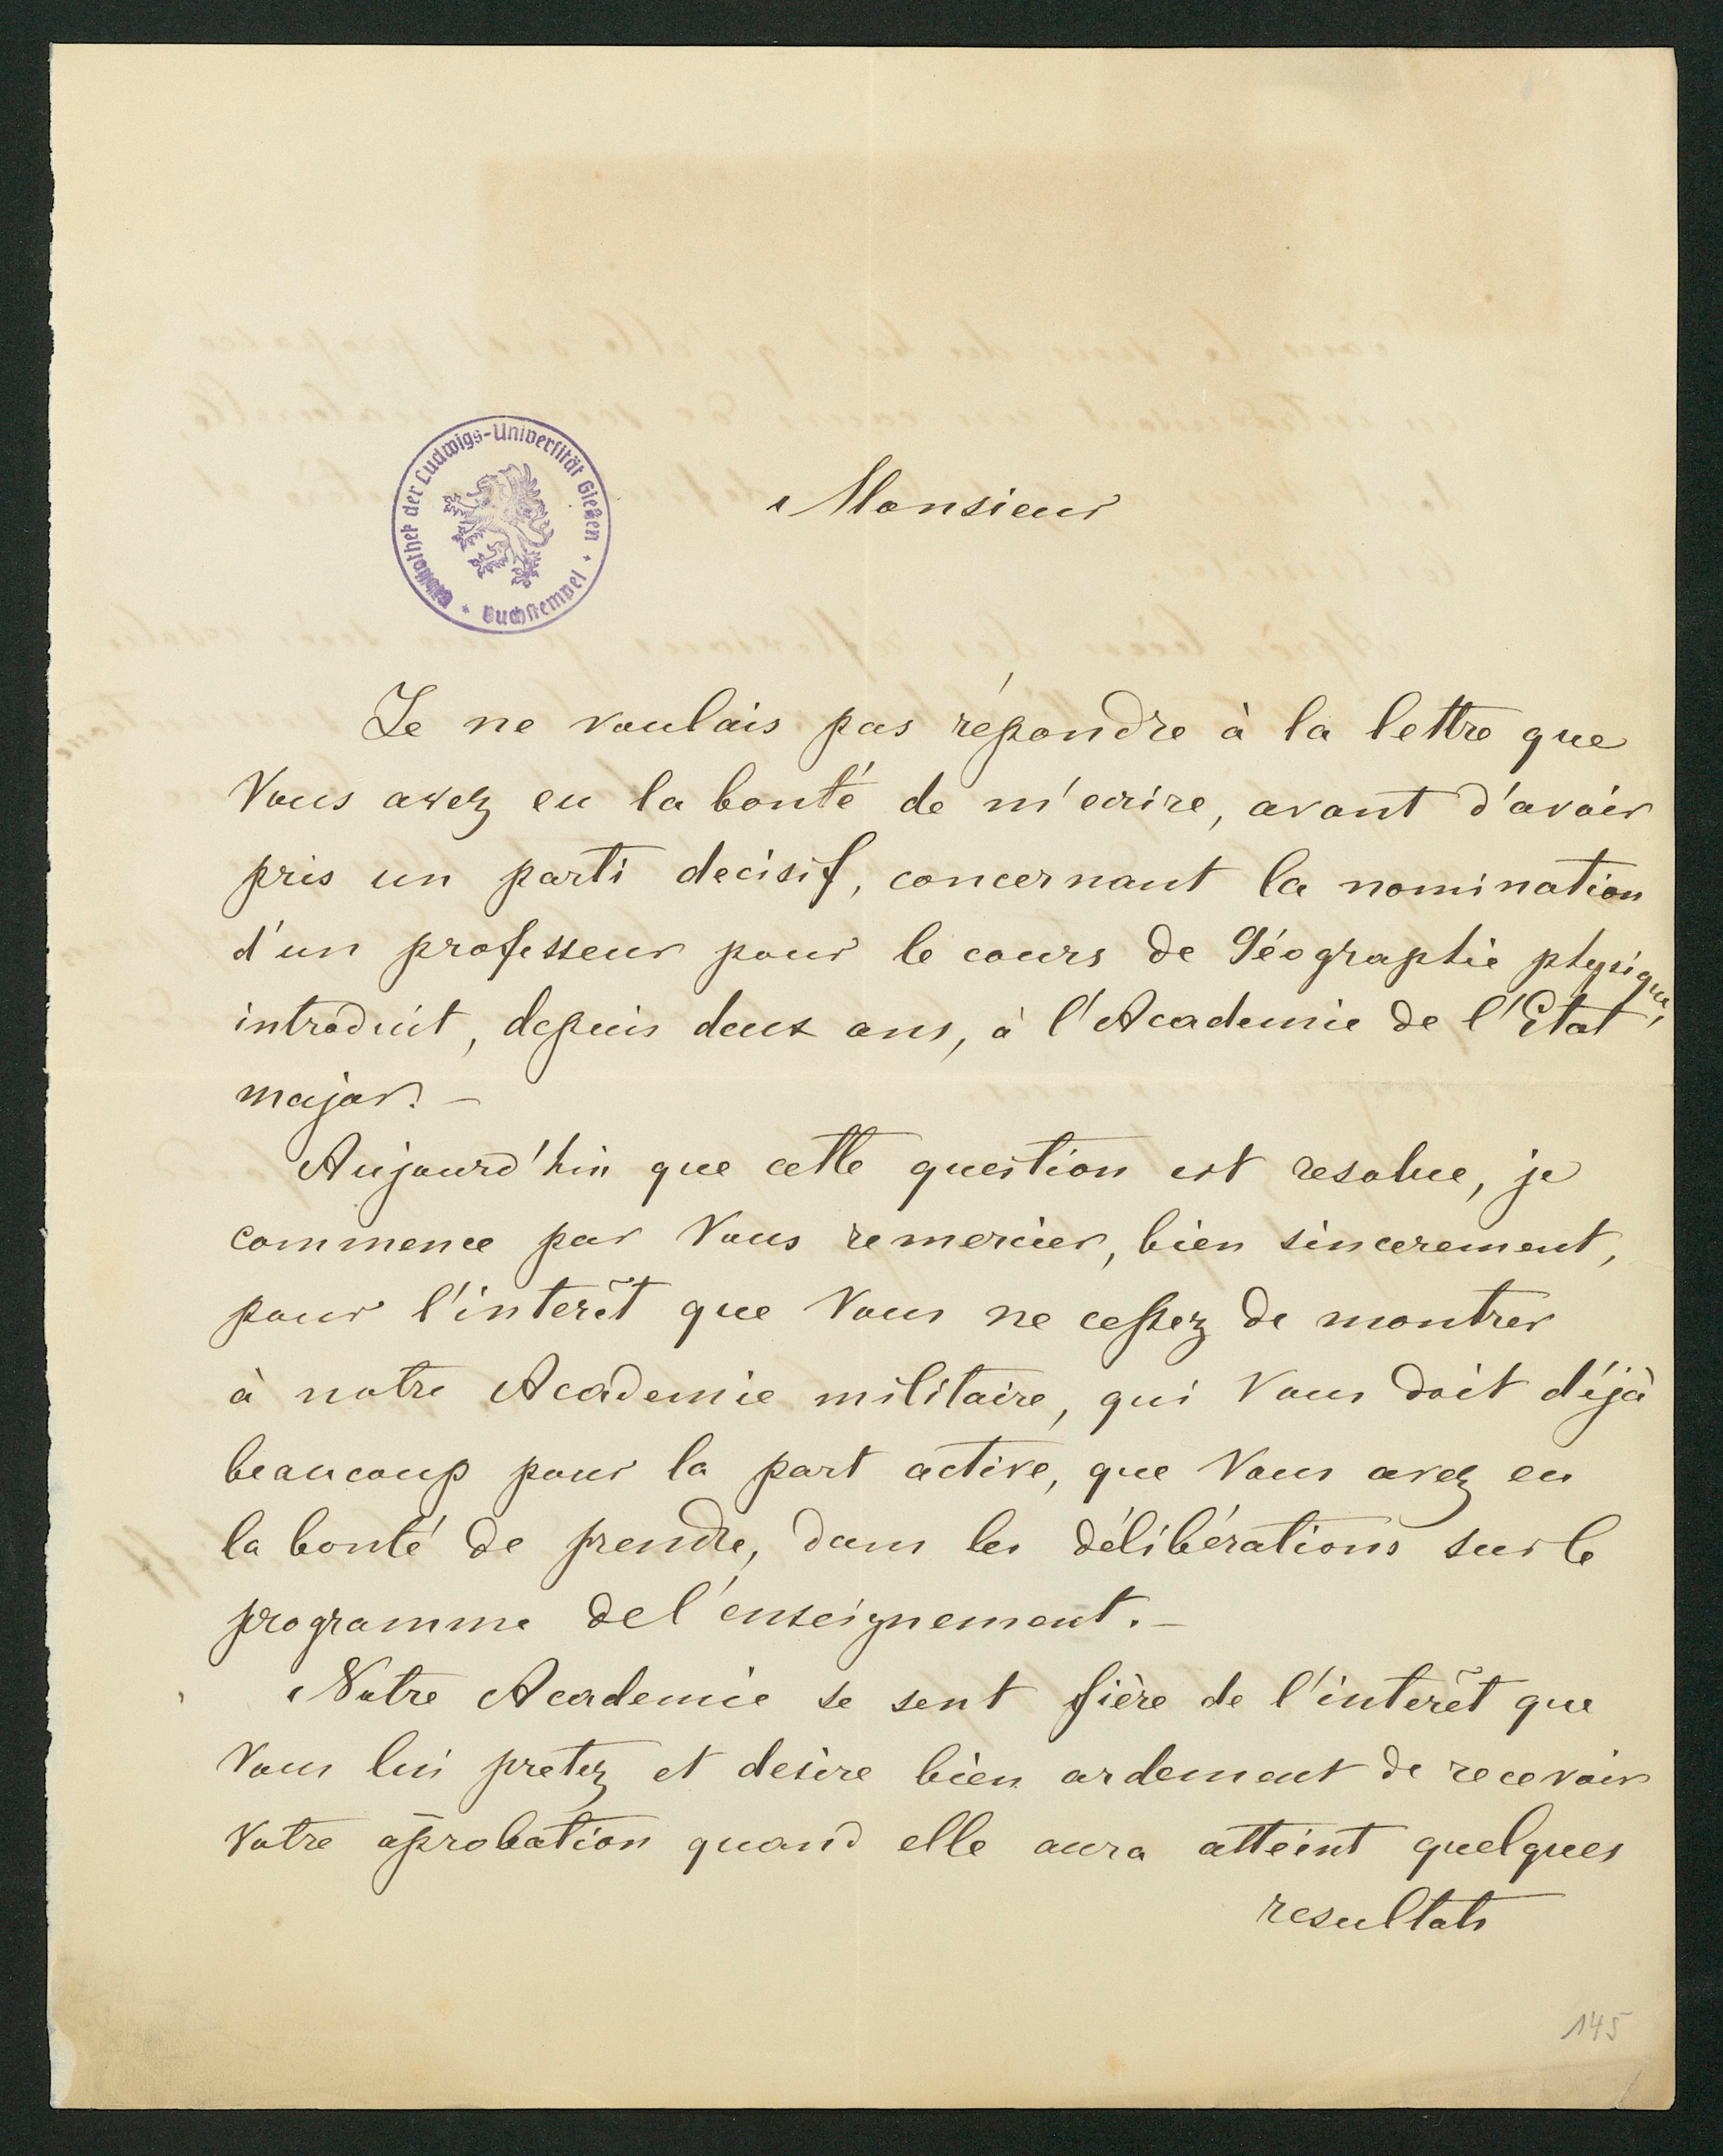 Bibliothek der Ludwigs-Universität Gießen
Buchstempel
Monsieur
Je ne voulais pas répondre à la lettre que
Vous avez eu la bonté de m'ecrire, avant d'avoir
pris un parti decisif, concernant la nomination
d'un professeur pour le cours de Géographie physique,
introduit, depuis deux ans, à l'Academie de l'Etat
major. –
Aujourd'hui que cette question est resolue, je
commence par Vous remercier, bien sincerement,
pour l'interêt que Vous ne cessez de montrer
à notre Academie militaire, qui Vous doit déjà
beaucoup pour la part active, que Vous avez eu
la bonté de prendre, dans les délibérations sur le
programme de l'enseignement. –
Notre Academie se sent fière de l'interêt que
Vous lui pretez et desire bien ardement de recevoir
Votre aprobation quand elle aura atteint quelques
resultats
145